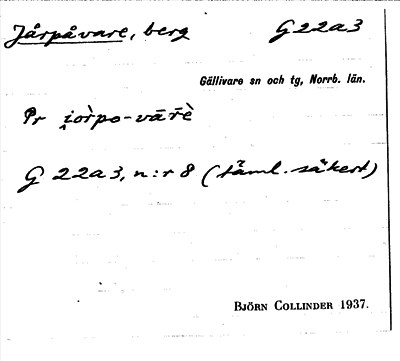 Jårpåvare, berg G22a3
Gällivare sn och tg, Norrb. län.
Pr i̯oròpo-vārè
G 22a3, n:r 8 (täml. säkert)
BJÖRN COLLINDER 1937.